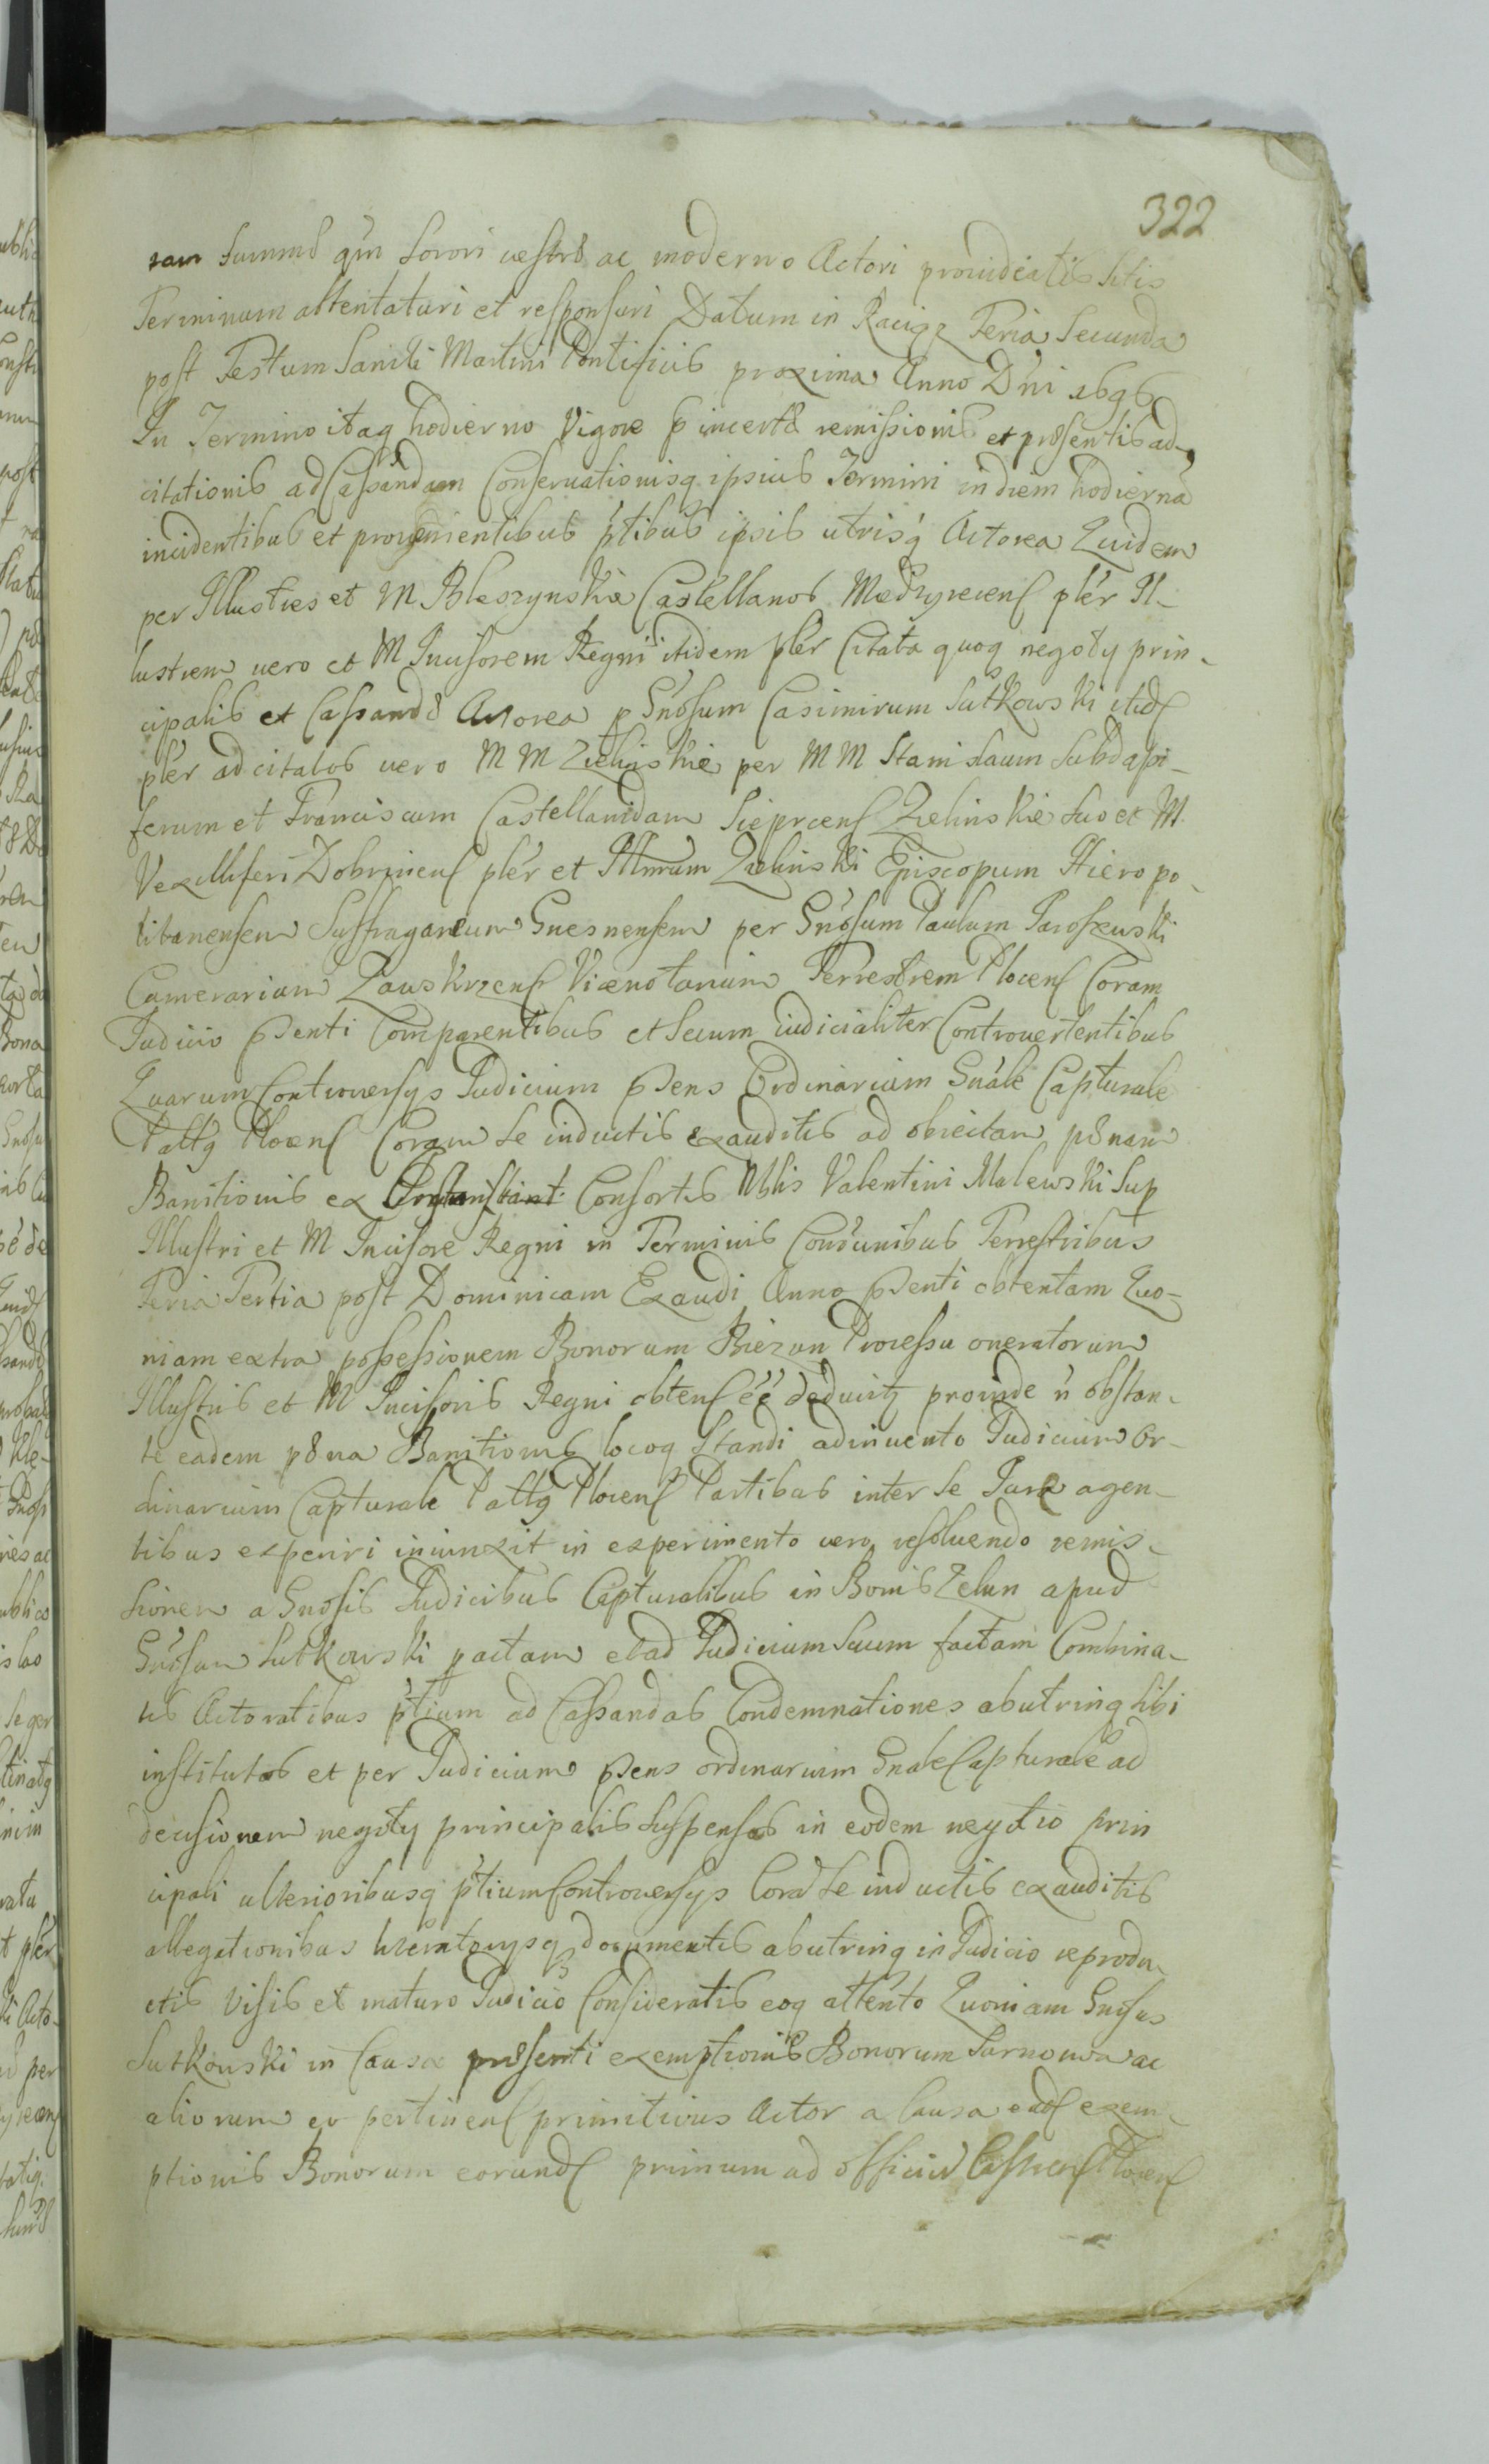 322
ram summæ qm Sorori vestræ ac moderno Actori providentis sitis
Terminum attentaturi et responsuri Datum in Raciąz Feria Secunda
post Festum Sancti Martini Pontificis proxima Anno Dni 1696
In Termino itaq hodierno Vigore p incertæ remissionis et præsentis ad
citationis ad Cassandam Conservationisq ipsius Termini in diem hodierna
incidentibus et provenientibus ptibus ipsis utrisq Actorea Quidem
per Illustres et M Bleszynskie Castellanos Miedzyrecens pler Il-
lustrem vero et M Incisorem Regni itidem pler Citata quoq negoty prin-
cipalis et Cassandæ Actorea p Gnosum Casimirum Sutkowski itid
pler adcitatos vero M M Zielinskie per M M Stanislaum Subdapi-
ferum et Franciscum Castellanidam Sieprcens Zielinskie suo et M
Vexilliferi Dobrinens pler et Illmum Zielinski Episcopum Hieropo-
litanensem Suffraganeum Gnesnensem per Gnosum Paulum Jaroszewski
Camerarium Zawskrzens Vicenotarium Terrestrem Plocens Coram
Judicio psenti Comparentibus et secum iudicialiter Controvertentibus
Quarum Controversys Judicium psens Ordinarium Gnale Capturale
Pattg Plocens Coram se inductis exauditis ad obiectam pænam
Banitionis ex Consortis Nblis Valentini Malewski Sup
Illustri et M Incisore Regni in Terminis Comunibus Terrestribus
Feria Tertia post Dominicam Exaudi Anno psenti obtentam Quo-
niam extra possessionem Bonorum Biezun Processu oneratorum
Illustris et M Incisoris Regni obtens éé deducitq proinde n obstan-
te eadem pæna Banitionis locoq standi adinvento Judicium Or-
dinarium Capturale Pattg Plocens Partibus inter se Jure agen-
tibus experiri iniunxit in experimento vero resolvendo remis-
sionem a Gnosis Judicibus Capturalibus in Bonis Zelun apud
Gnosum Sutkowski pactam et ad Judicium suum factam Combina-
tis Actoratibus ptium ad Cassandas Condemnationes abutrinq sibi
institutas et per Judicium psens ordinarium Gnale Capturale ad
decisionem negoty principalis suspensas in eodem negotio prin
cipali ulterioribusq ptium Controversys Cora se inductis exauditis
allegationibus literatorysq documentis abutrinq in Judicio reprodu-
ctis visis et maturo Judicio Consideratis eoq attento Quoniam Gnosus
Sutkowski in Causa præsenti exemptionis Bonorum Sarnowa ac
aliorum eo pertinens primitivus Actor a Causa ead exem-
ptionis Bonorum eorund primum ad officiu Castrens Plocens